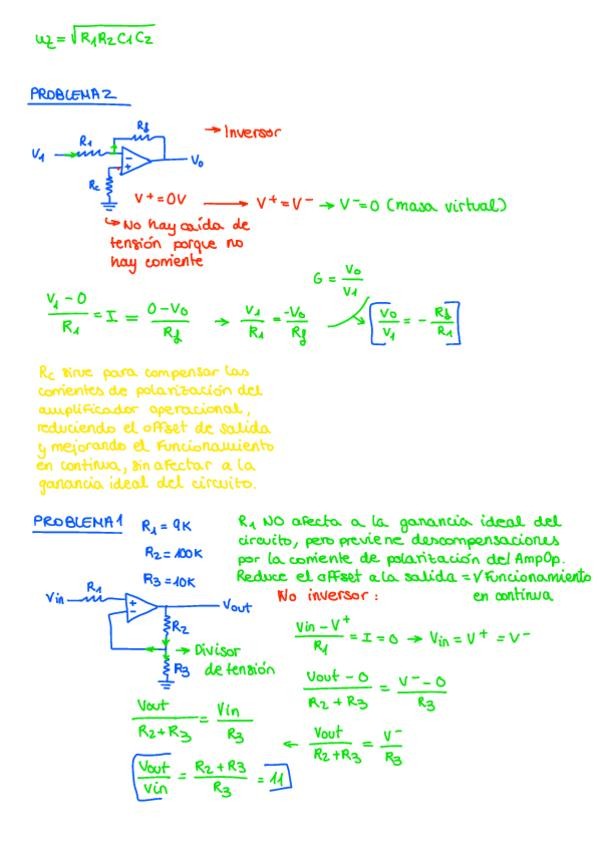 ωz = √R1R2C1C2
PROBLEMA 2
Rf
→ Inversor
R1
V1
Vo
Rc
V+=0V → V+=V- → V-=0 (masa virtual)
↳ No hay caída de
tensión porque no
hay corriente
G = Vo/V1
(V1 - 0)/R1 = I = (0 - Vo)/Rf → V1/R1 = -Vo/Rf → [Vo/V1 = - Rf/R1]
Rc sirve para compensar las
corrientes de polarización del
amplificador operacional,
reduciendo el offset de salida
y mejorando el funcionamiento
en continua, sin afectar a la
ganancia ideal del circuito.
PROBLEMA 1
R1 = 9K
R2 = 100K
R3 = 10K
R1 NO afecta a la ganancia ideal del
circuito, pero previene descompensaciones
por la corriente de polarización del AmpOp.
Reduce el offset a la salida = √ Funcionamiento
en continua
No inversor:
Vin
R1
Vout
R2
→ Divisor
de tensión
R3
(Vin - V+)/R1 = I = 0 → Vin = V+ = V-
(Vout - 0)/(R2 + R3) = (V- - 0)/R3
← Vout/(R2+R3) = V-/R3
Vout/(R2+R3) = Vin/R3
[Vout/Vin = (R2 + R3)/R3 = 11]